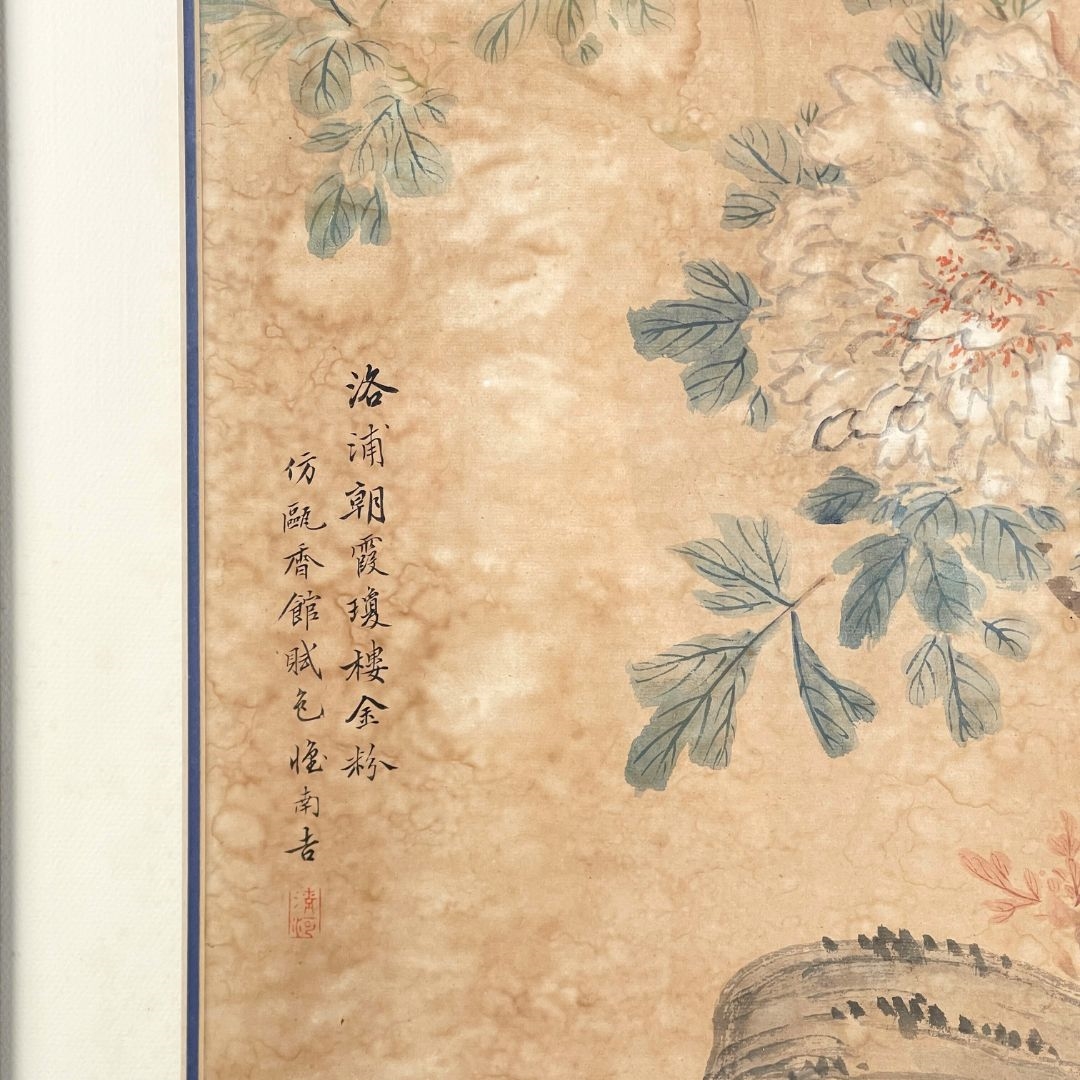 洛浦朝霞瓊樓金粉
仿甌香館賦色 南吉